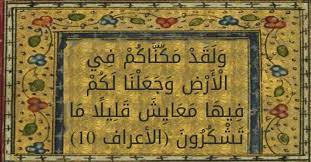 وَلَقَدْ مَكَّنَّاكُمْ فِي
الْأَرْضِ وَجَعَلْنَا لَكُمْ
فِيهَا مَعَايِشَ قَلِيلًا مَا
تَشْكُرُونَ (الأعراف 10)